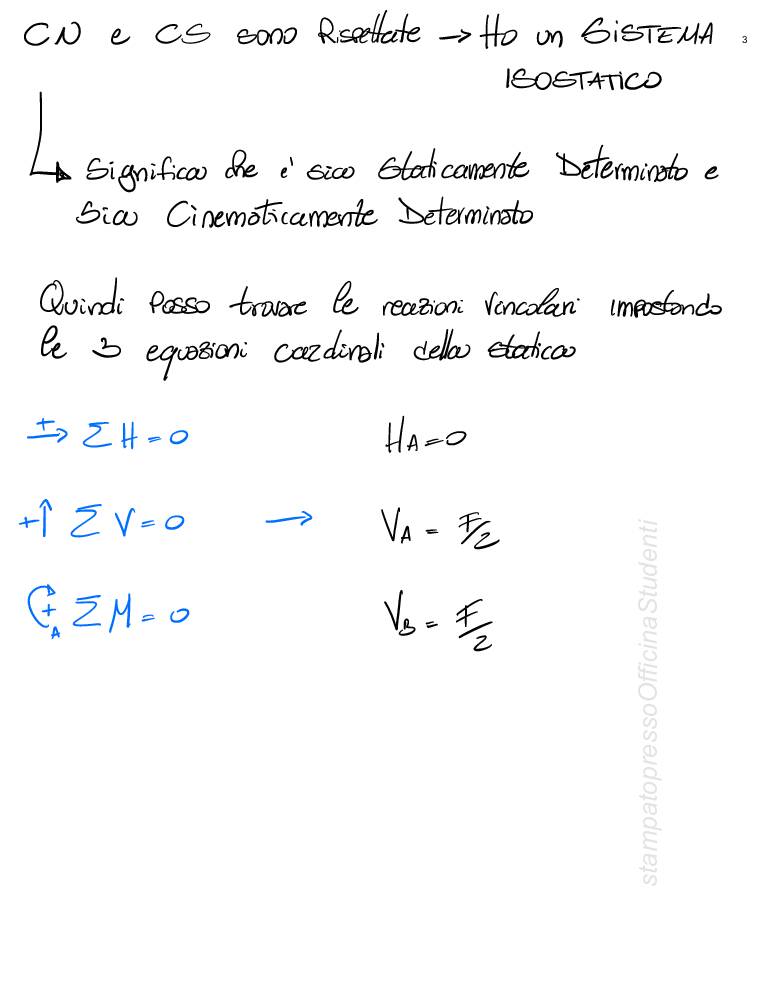 CN e CS sono Rispettate → Ho un SISTEMA
3
ISOSTATICO
Significa che è sia Staticamente Determinato e
Sia Cinematicamente Determinato
Quindi Posso trovare le reazioni Vincolari impostando
le 3 equazioni cardinali della statica
+→ ΣH=0 H_A=0
+↑ ΣV=0 → V_A = F/2
+ A ΣM=0 V_B = F/2
stampatopressoOfficinaStudenti